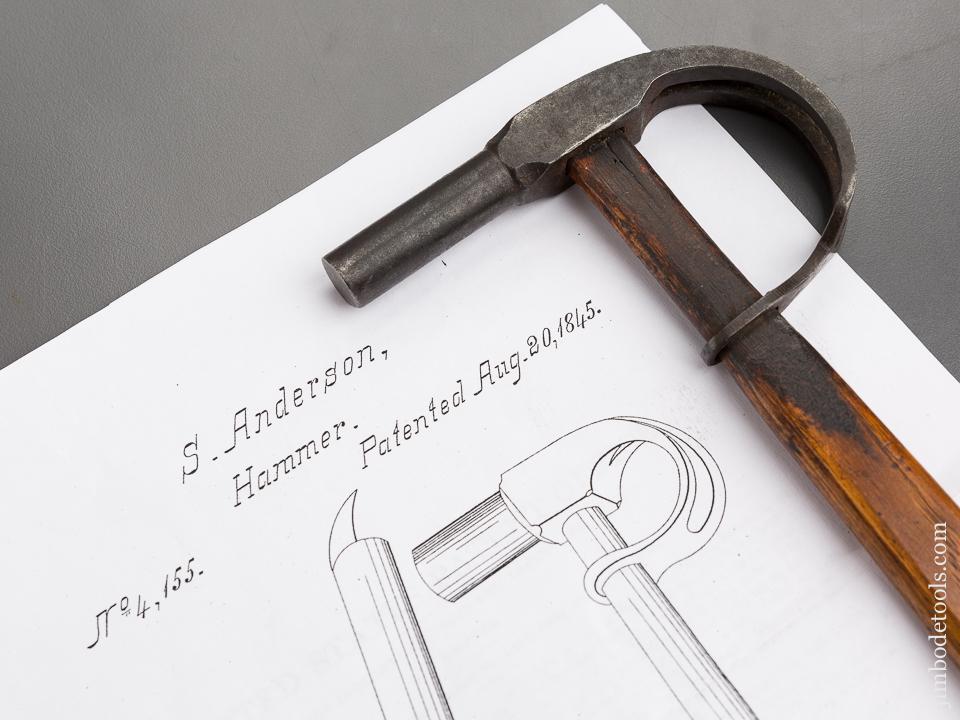 S. Anderson,
Hammer.
Patented Aug. 20, 1845.
Nº 4,155.
jimbodetools.com